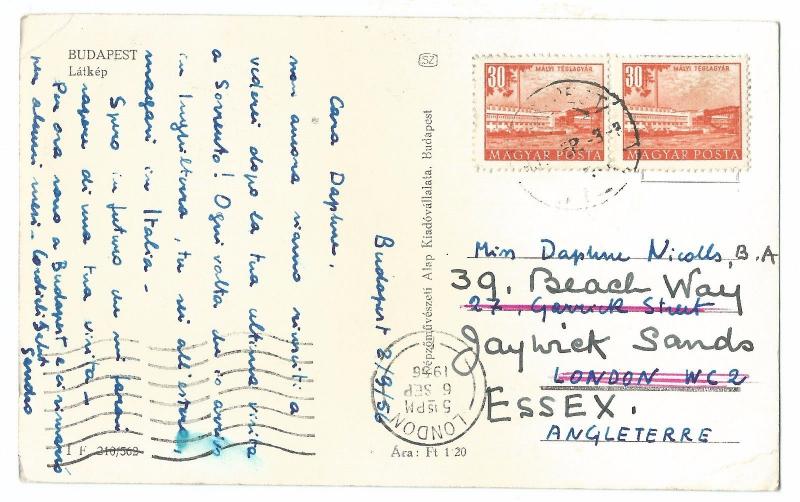 BUDAPEST
Látkép
SZ
Budapest 2/9/56
Cara Daphne,
non ancora siamo riusciti a
vederci dopo la tua ultima visita
a Sorrento! Ogni volta che io arrivo
in Inghilterra, tu sei all'estero,
magari in Italia –
Spero in futuro che mi farai
sapere di una tua visita –
Per ora sono a Budapest e ci rimarrò
per alcuni mesi – Cordiali Saluti
Sandro
I F 210/562
Képzőművészeti Alap Kiadóvállalata, Budapest
Ára: Ft 1·20
30 MÁLYI TÉGLAGYÁR
MAGYAR POSTA
30 MÁLYI TÉGLAGYÁR
MAGYAR POSTA
LONDON
5 15 PM
6 SEP
1956
Miss Daphne Nicolls, B.A
39, Beach Way
27, Garrick Street
Jaywick Sands
LONDON WC2
ESSEX.
ANGLETERRE